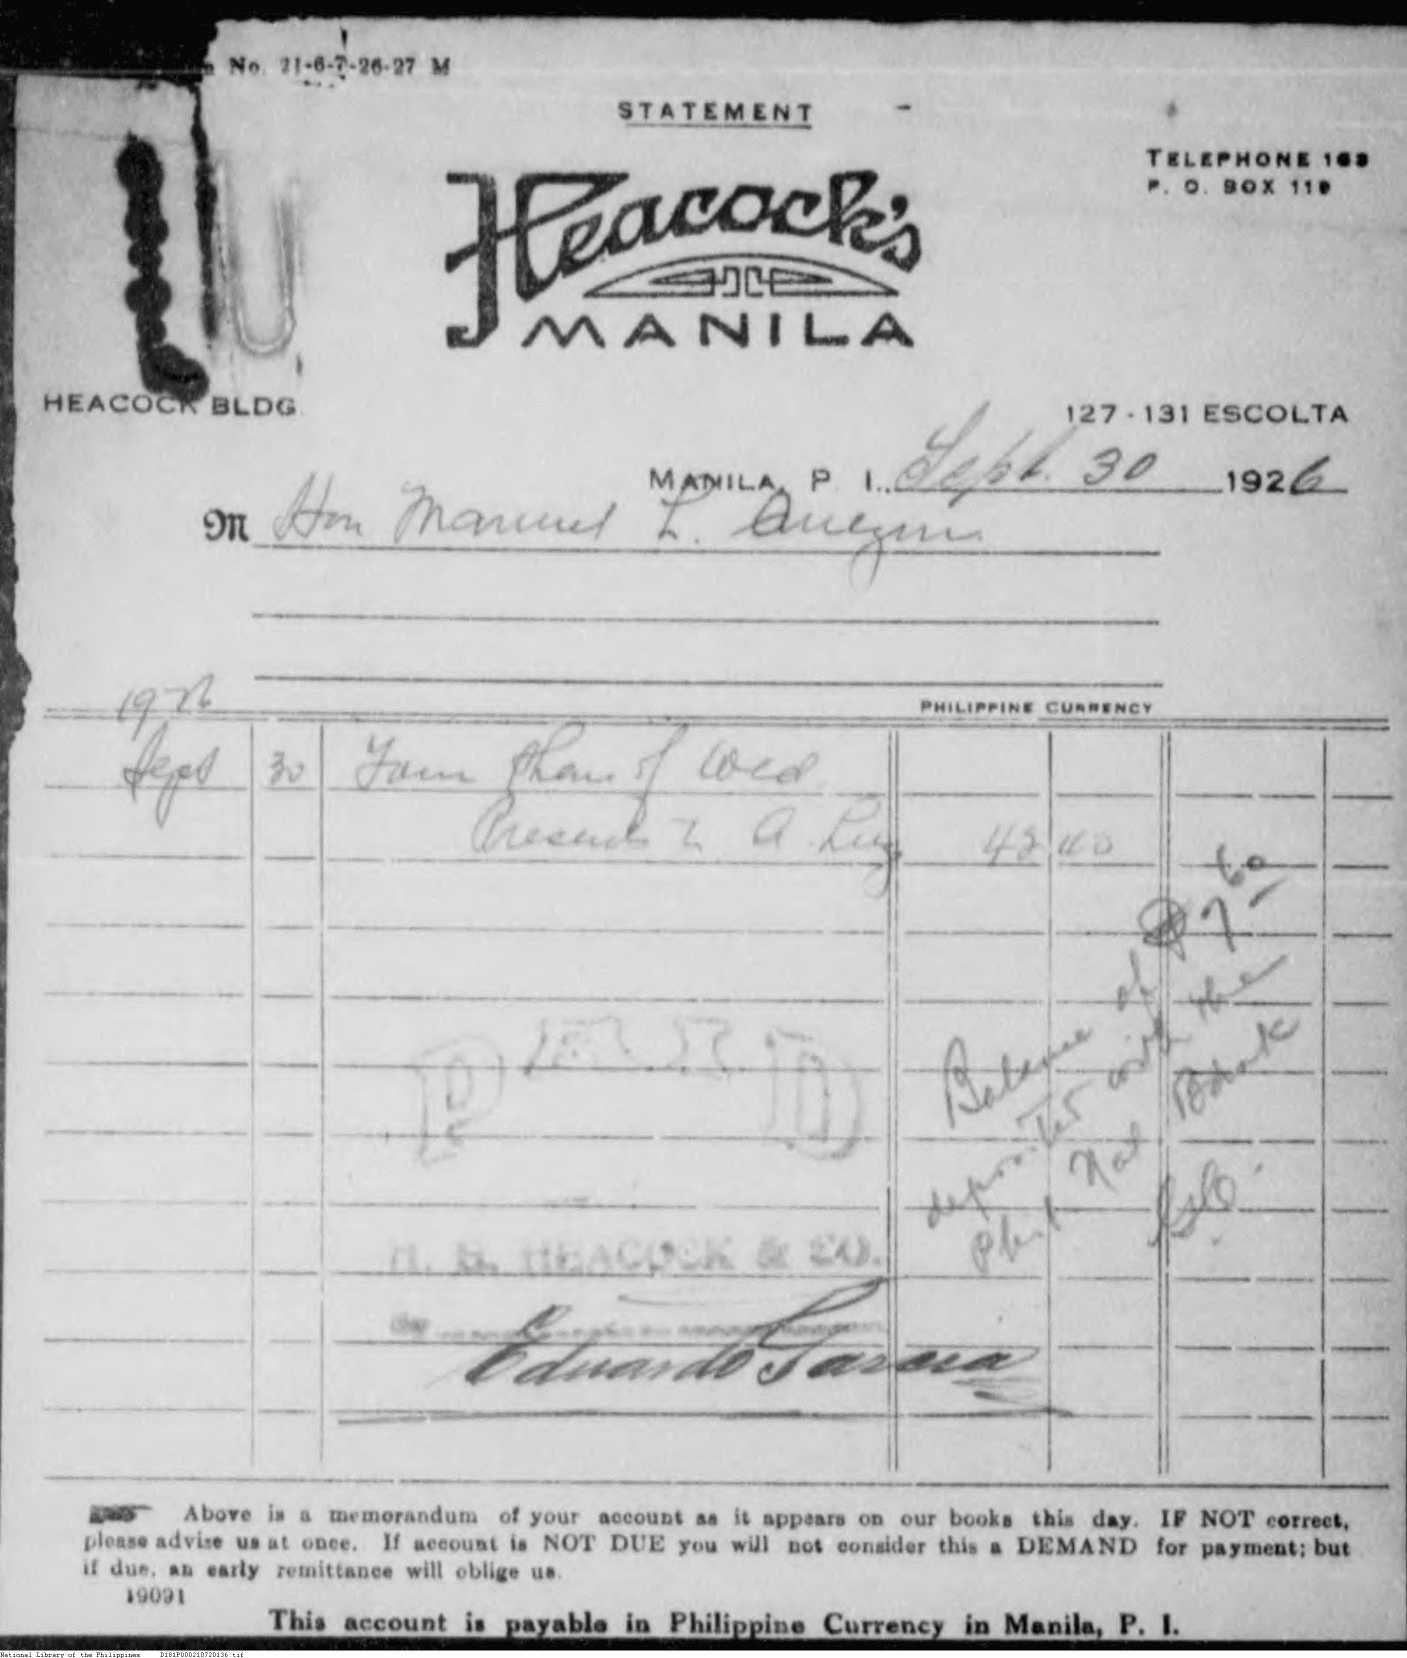 No. 21-6-7-26-27 M
STATEMENT
TELEPHONE 168
P. O. BOX 119
Heacock's
MANILA
HEACOCK BLDG
127-131 ESCOLTA
MANILA, P. I. Sept. 30 1926
M Hon Manuel L. Quezon
1926
PHILIPPINE CURRENCY
Sept 30 Your Share of Wed
Presents to A. Luz 42 40
Balance of ₱ 7 60
deposited with the
Phil Nat Bank
PAID
H. E. HEACOCK & CO.
Eduardo Garcia
Above is a memorandum of your account as it appears on our books this day. IF NOT correct,
please advise us at once. If account is NOT DUE you will not consider this a DEMAND for payment; but
if due, an early remittance will oblige us.
19091
This account is payable in Philippine Currency in Manila, P. I.
National Library of the Philippines D181P000210720136.tif